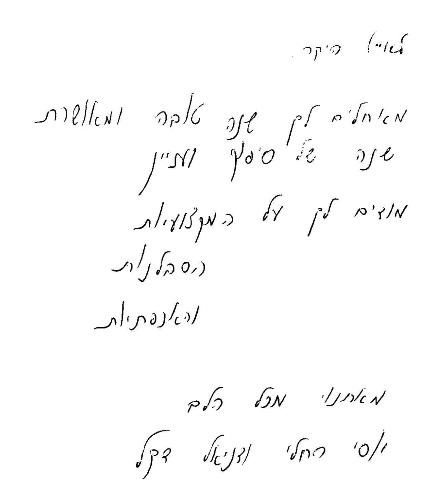 לאייל היקר.
מאחלים לך שנה טובה ומאושרת
שנה של סיפוק ועניין
מודים לך על המקצועיות
הסבלנות
והאנפתיות
מאתנו מכל הלב
יוסי רחלי ודניאל דקל